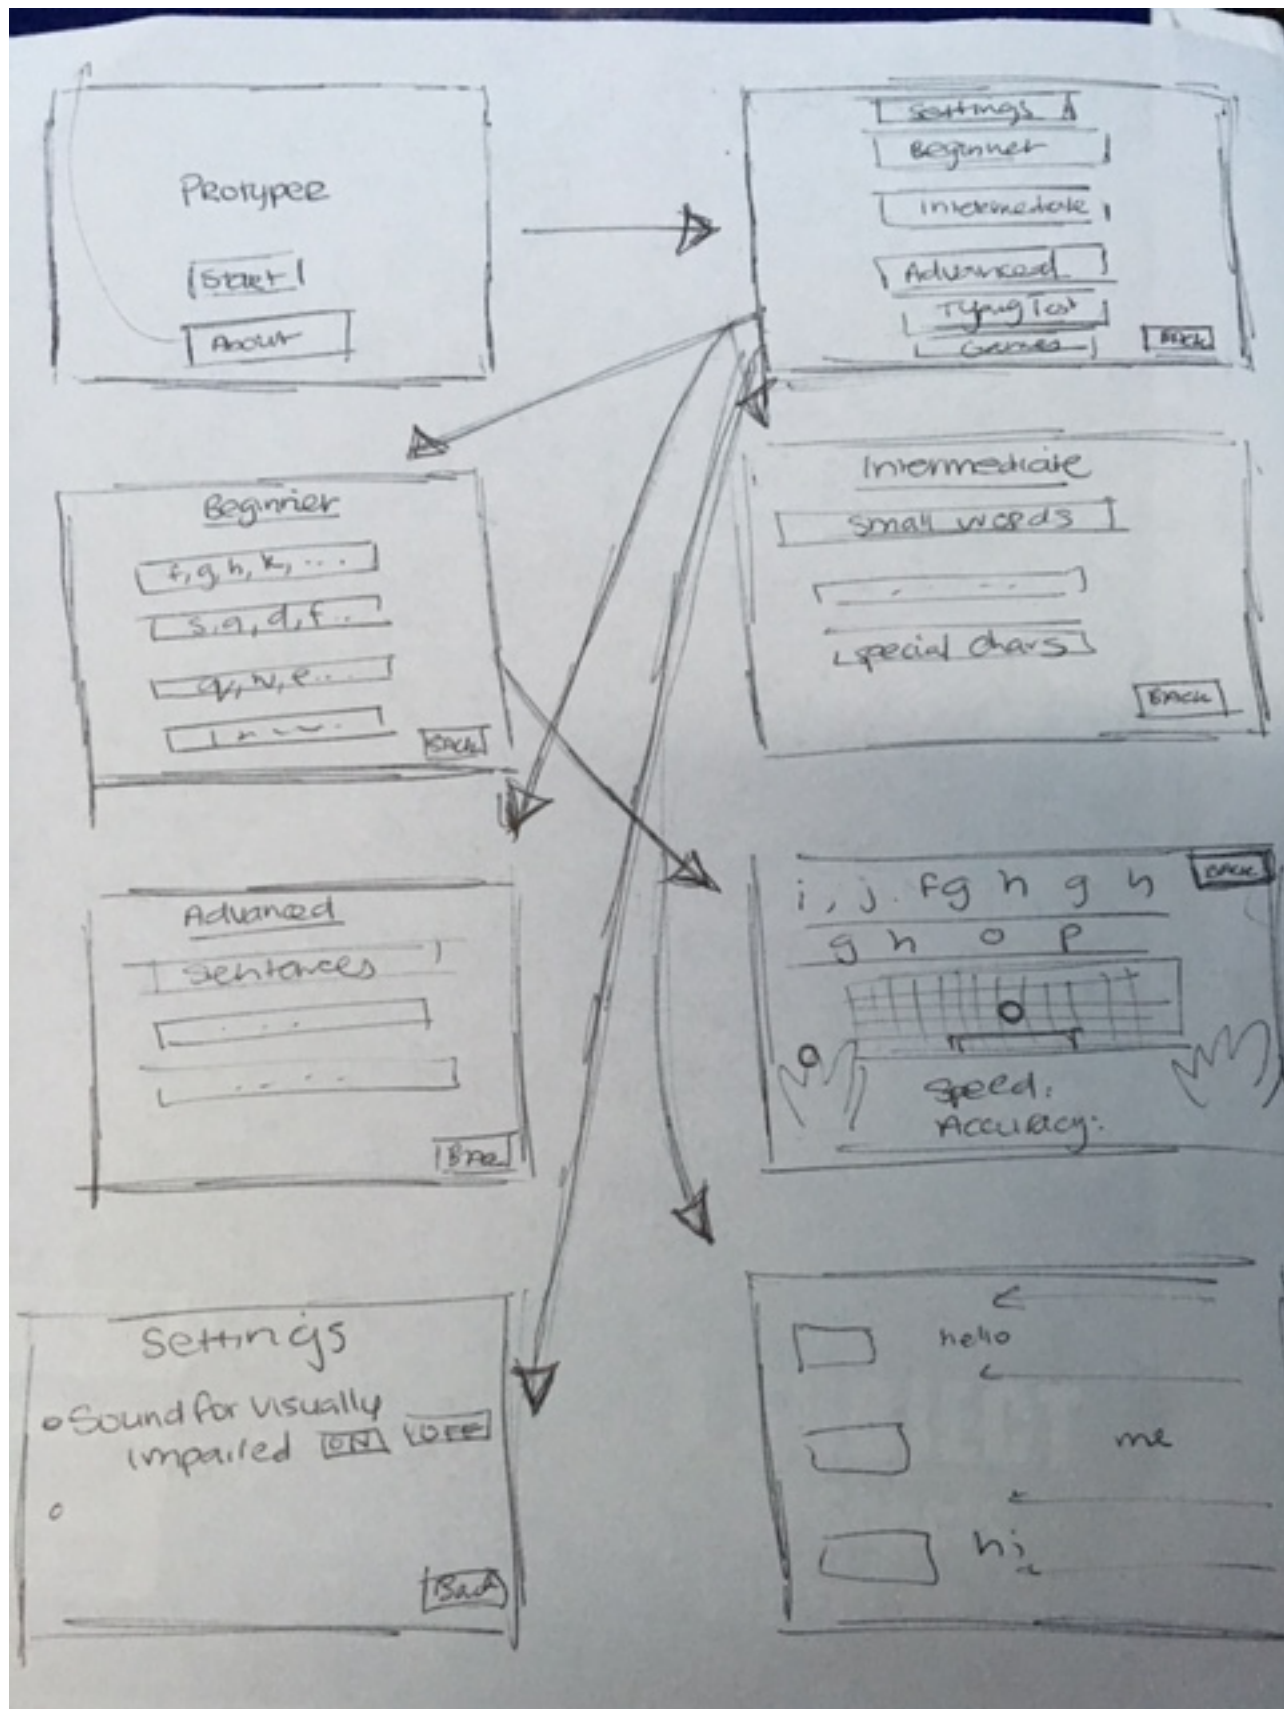 Protyper
Start
About
Settings
Beginner
Intermediate
Advanced
Typing Test
Games
Back
Beginner
f, g, h, k, ...
s, a, d, f ..
q, w, e...
Back
Intermediate
small words
special chars
Back
Advanced
Sentences
. . .
. . . .
Back
i, j. f g h g h
g h o p
Speed:
Accuracy:
Settings
Sound for visually
impaired ON OFF
Back
hello
me
hi